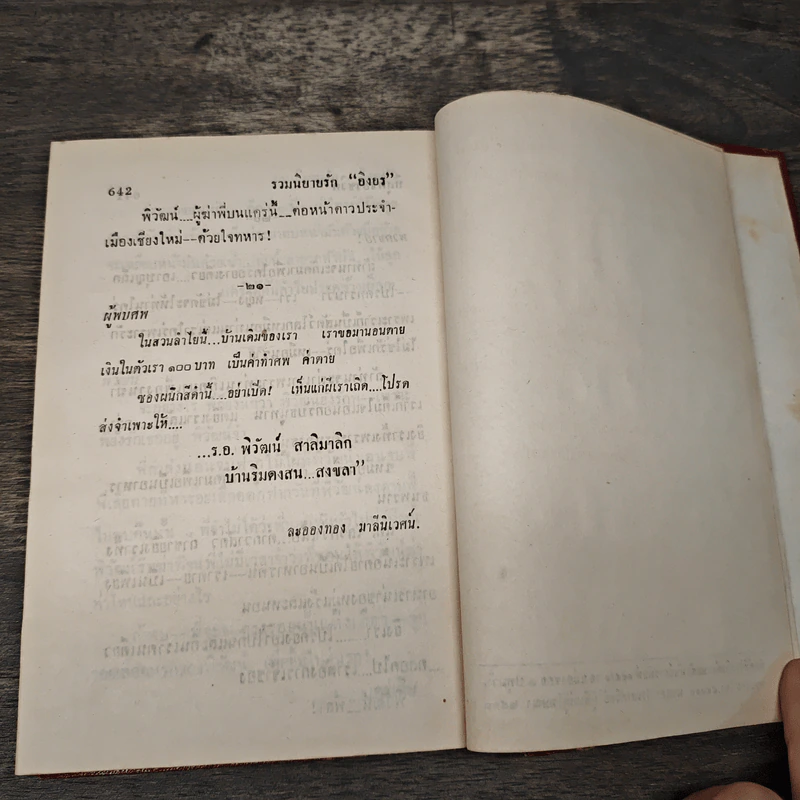 642
รวมนิยายรัก “อิงอร”
พิวัฒน์....ผู้ฆ่าพี่บนแคร่นี้—ต่อหน้าดาวประจำ-
เมืองเชียงใหม่--ด้วยใจทหาร!
-๒๑-
ผู้พบศพ
ในสวนลำไยนี้...บ้านเดิมของเรา เราขอมานอนตาย
เงินในตัวเรา ๑๐๐ บาท เป็นค่าทำศพ ค่าตาย
ซองผนึกสีดำนี้....อย่าเปิด! เห็นแก่ผีเราเถิด....โปรด
ส่งจำเพาะให้....
...ร.อ. พิวัฒน์ สาลิมาลิก
บ้านริมดงสน...สงขลา”
ละอองทอง มาลีนิเวศน์.